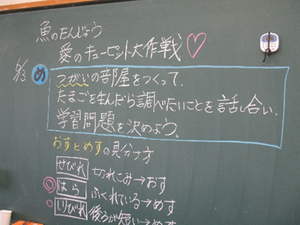 魚のたんじょう
愛のキューピット大作戦♡
5/3
め
つがいの部屋をつくって、
たまごを産んだら調べたいことを話し合い、
学習問題を決めよう。
おすとめすの見分け方
せびれ 切れこみ→おす
◎はら ふくれている→めす
◎しりびれ 後ろが短い→めす